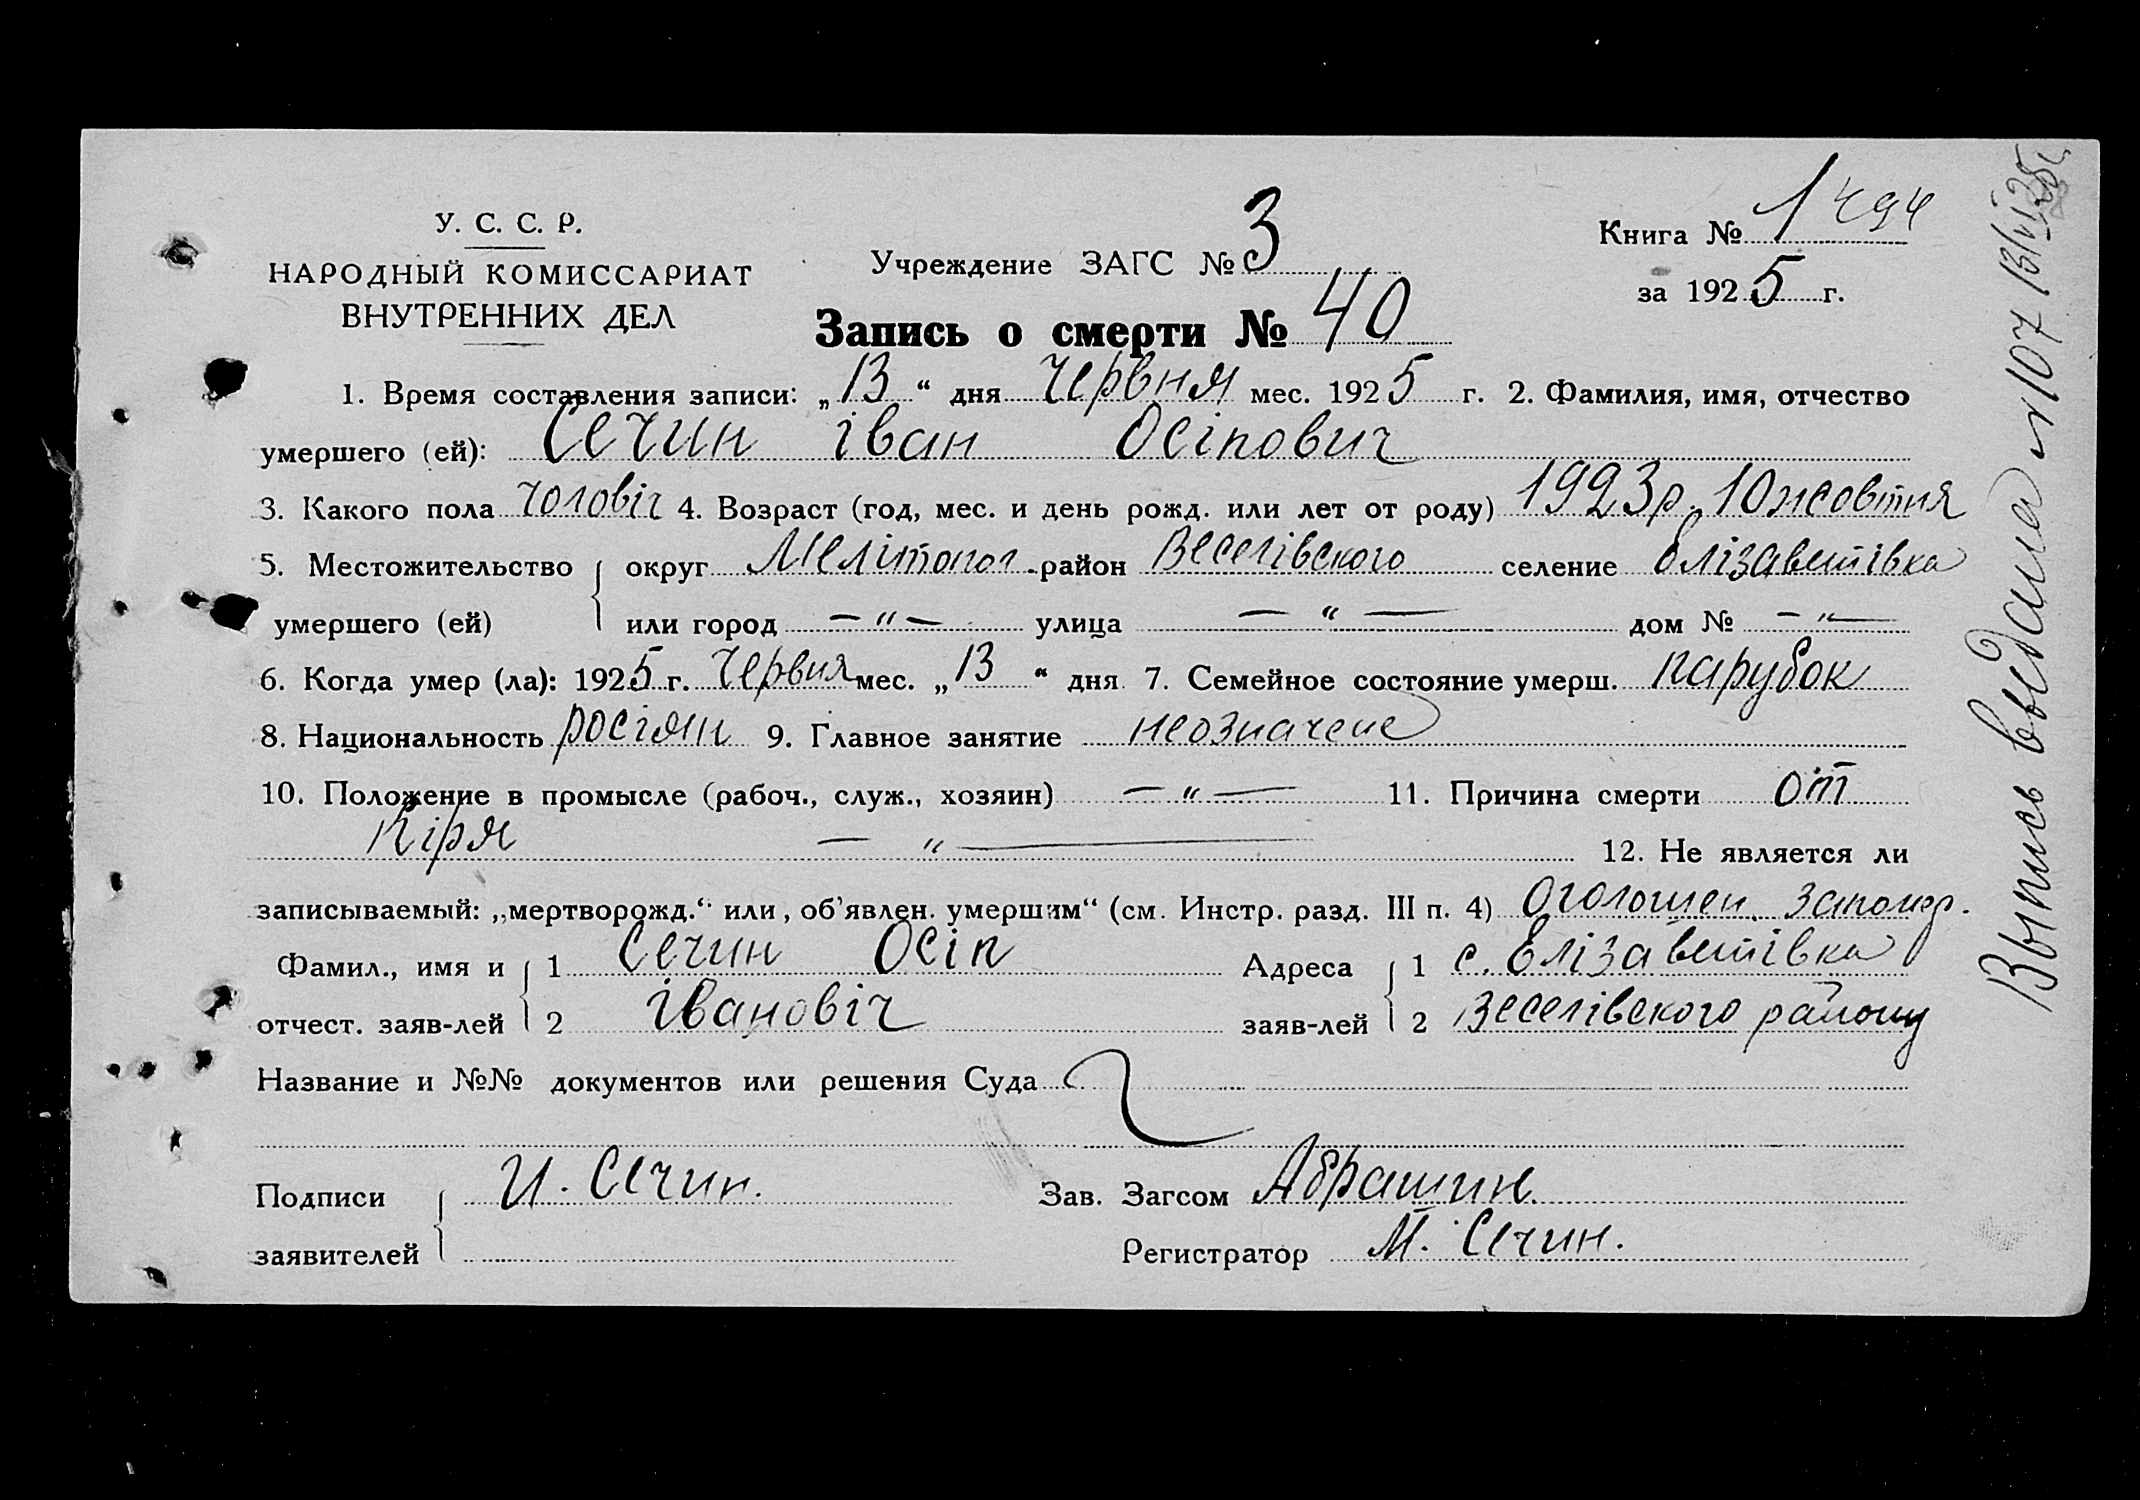 У. С. С. Р.
НАРОДНЫЙ КОМИССАРИАТ
ВНУТРЕННИХ ДЕЛ
Учреждение ЗАГС № 3
Книга № 1
за 1925 г.
Запись о смерти № 40
1. Время составления записи: „13“ дня Червня мес. 1925 г. 2. Фамилия, имя, отчество
умершего (ей): Сечин Іван Осіпович
3. Какого пола чоловіч 4. Возраст (год, мес. и день рожд. или лет от роду) 1923р. 10 жовтня
5. Местожительство округ Мелітопол. район Веселівского селение Єлізаветівка
умершего (ей) или город — „ — улица — „ — дом № — „ —
6. Когда умер (ла): 1925 г. Червня мес. „13“ дня 7. Семейное состояние умерш. парубок
8. Национальность росіян 9. Главное занятие неозначене
10. Положение в промысле (рабоч., служ., хозяин) — „ — 11. Причина смерти от
Кіря — „ — 12. Не является ли
записываемый: „мертворожд.“ или „об’явлен. умершим“ (см. Инстр. разд. III п. 4) Оголошен. запомер.
Фамил., имя и 1 Сечин Осіп Адреса 1 с. Єлізаветівка
отчест. заяв-лей 2 Івановіч заяв-лей 2 Веселівского району
Название и №№ документов или решения Суда
Подписи И. Сечин. Зав. Загсом Абрашин
заявителей Регистратор М. Сечин.
Выпись выдана № 107 13/VI 25г.